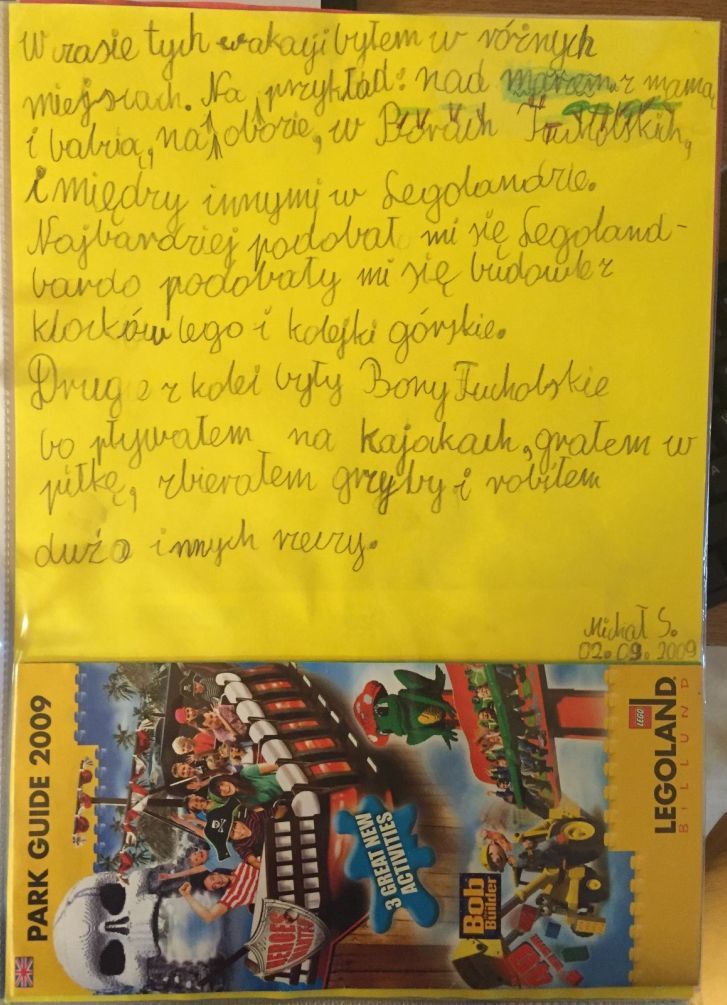 W czasie tych wakacji byłem w różnych
miejscach. Na przykład: nad morzem z mamą
i babcią, na obozie, w Borach Tucholskich,
i między innymi w Legolandzie.
Najbardziej podobał mi się Legoland-
bardo podobały mi się budowle z
klocków lego i kolejki górskie.
Drugie z kolei były Bory Tucholskie
bo pływałem na kajakach, grałem w
piłkę, zbierałem grzyby i robiłem
dużo innych rzeczy.
Michał S.
02.09.2009
PARK GUIDE 2009
3 GREAT NEW
ACTIVITIES
HEROES
Bob
the
Builder
LEGO
LEGOLAND
BILLUND